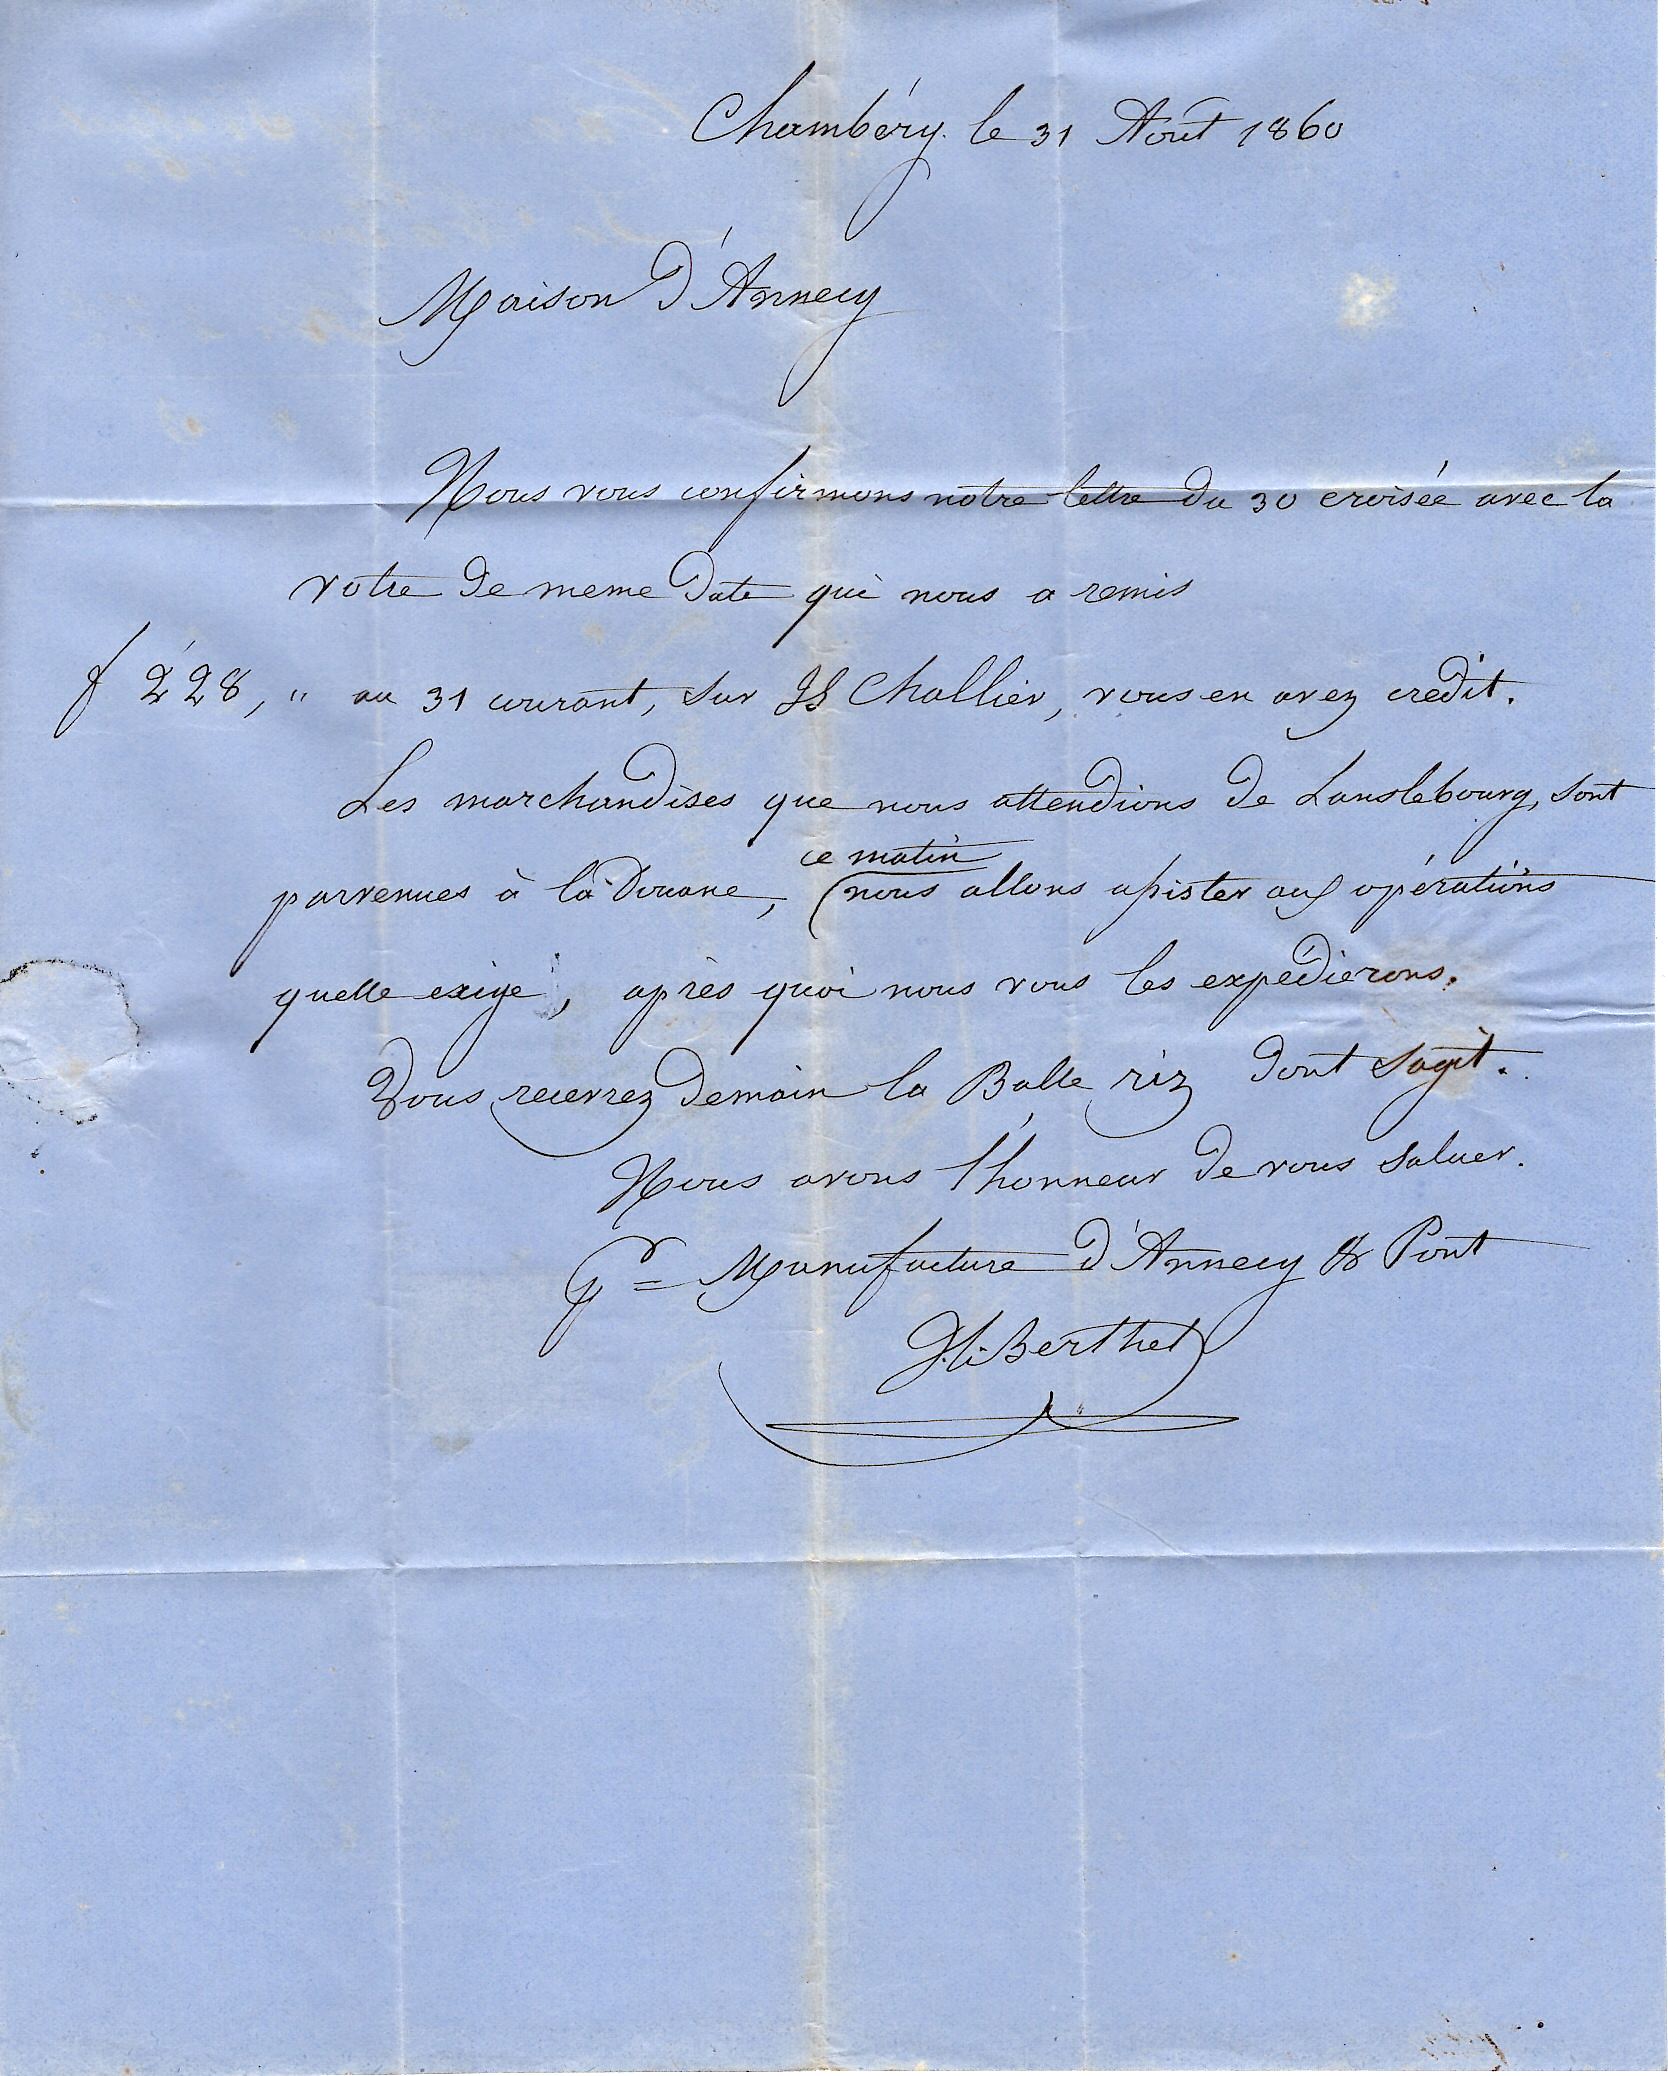 Chambéry le 31 Août 1860
Maison d'Annecy
Nous vous confirmons notre lettre du 30 croisée avec la
votre de meme date qui nous a remis
f 228, " au 31 courant, sur Challier, vous en avez credit.
Les marchandises que nous attendions de Lanslebourg, sont
ce matin
parvenues à la Douane, (nous allons assister aux opérations
quelle exige, après quoi nous vous les expédierons.
Vous recevrez demain la Balle riz dont sagit.
Nous avons l'honneur de vous saluer.
Pr Manufacture d'Annecy & Pont
Berthet